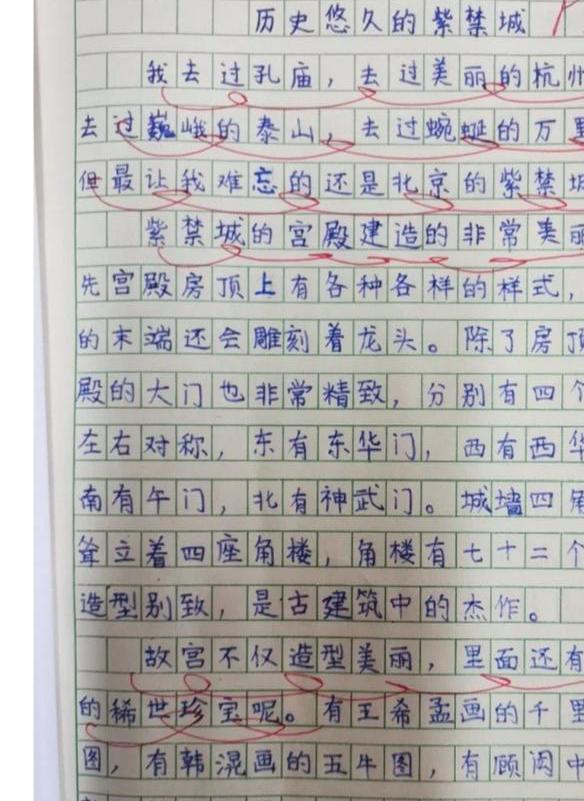 历史悠久的紫禁城
我去过孔庙，去过美丽的杭州
去过巍峨的泰山，去过蜿蜒的万里
但最让我难忘的还是北京的紫禁城
紫禁城的宫殿建造的非常美丽
先宫殿房顶上有各种各样的样式，
的末端还会雕刻着龙头。除了房顶
殿的大门也非常精致，分别有四个
左右对称，东有东华门，西有西华
南有午门，北有神武门。城墙四角
耸立着四座角楼，角楼有七十二个
造型别致，是古建筑中的杰作。
故宫不仅造型美丽，里面还有
的稀世珍宝呢。有王希孟画的千里
图，有韩滉画的五牛图，有顾闳中